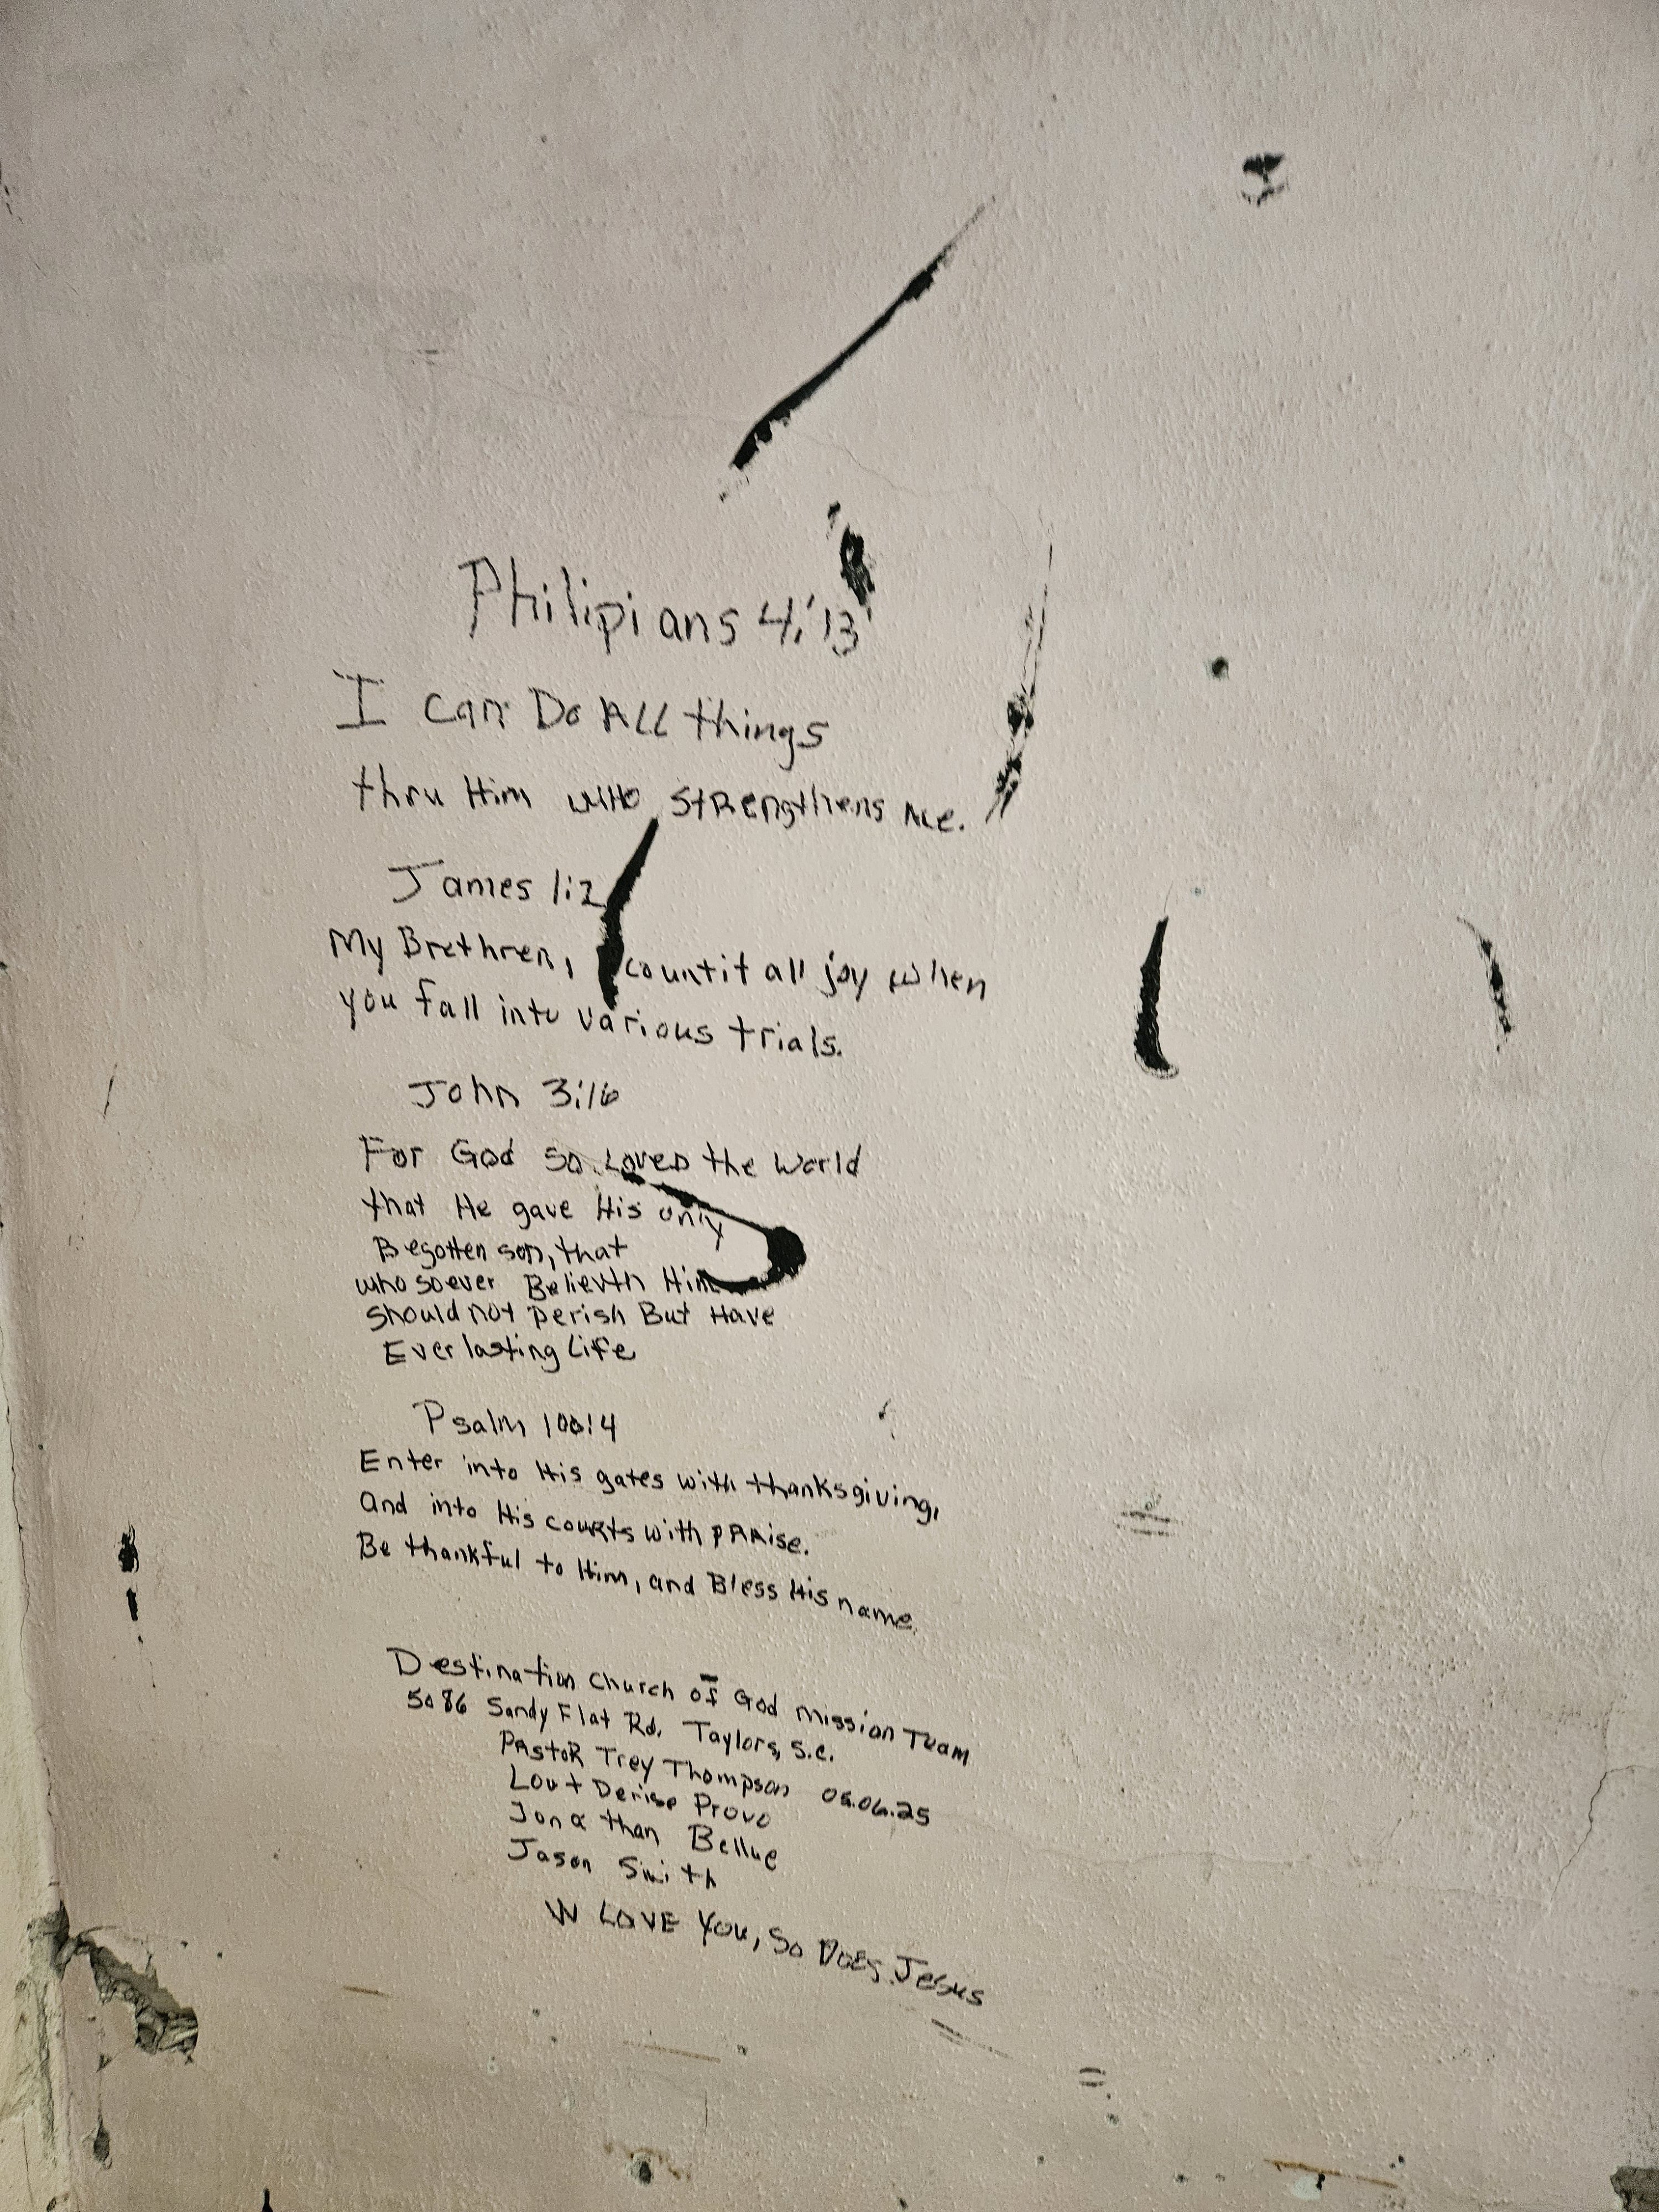 Philipians 4:13
I Can Do ALL things
thru Him WHO StRengthens Me.
James 1:2
My Brethren, count it all joy when
you fall into various trials.
John 3:16
For God so LoveD the World
that He gave His only
Begotten son, that
whosoever Believth Him
should not perish But Have
Everlasting Life
Psalm 100:4
Enter into His gates with thanksgiving,
and into His couRts with pRAise.
Be thankful to Him, and Bless His name.
Destination Church of God mission Team
5086 Sandy Flat Rd. Taylors, S.C.
PAstoR Trey Thompson 06.06.25
Lou + Derise Provo
Jonathan Bellue
Jason Smith
W LOVE You, So Does Jesus